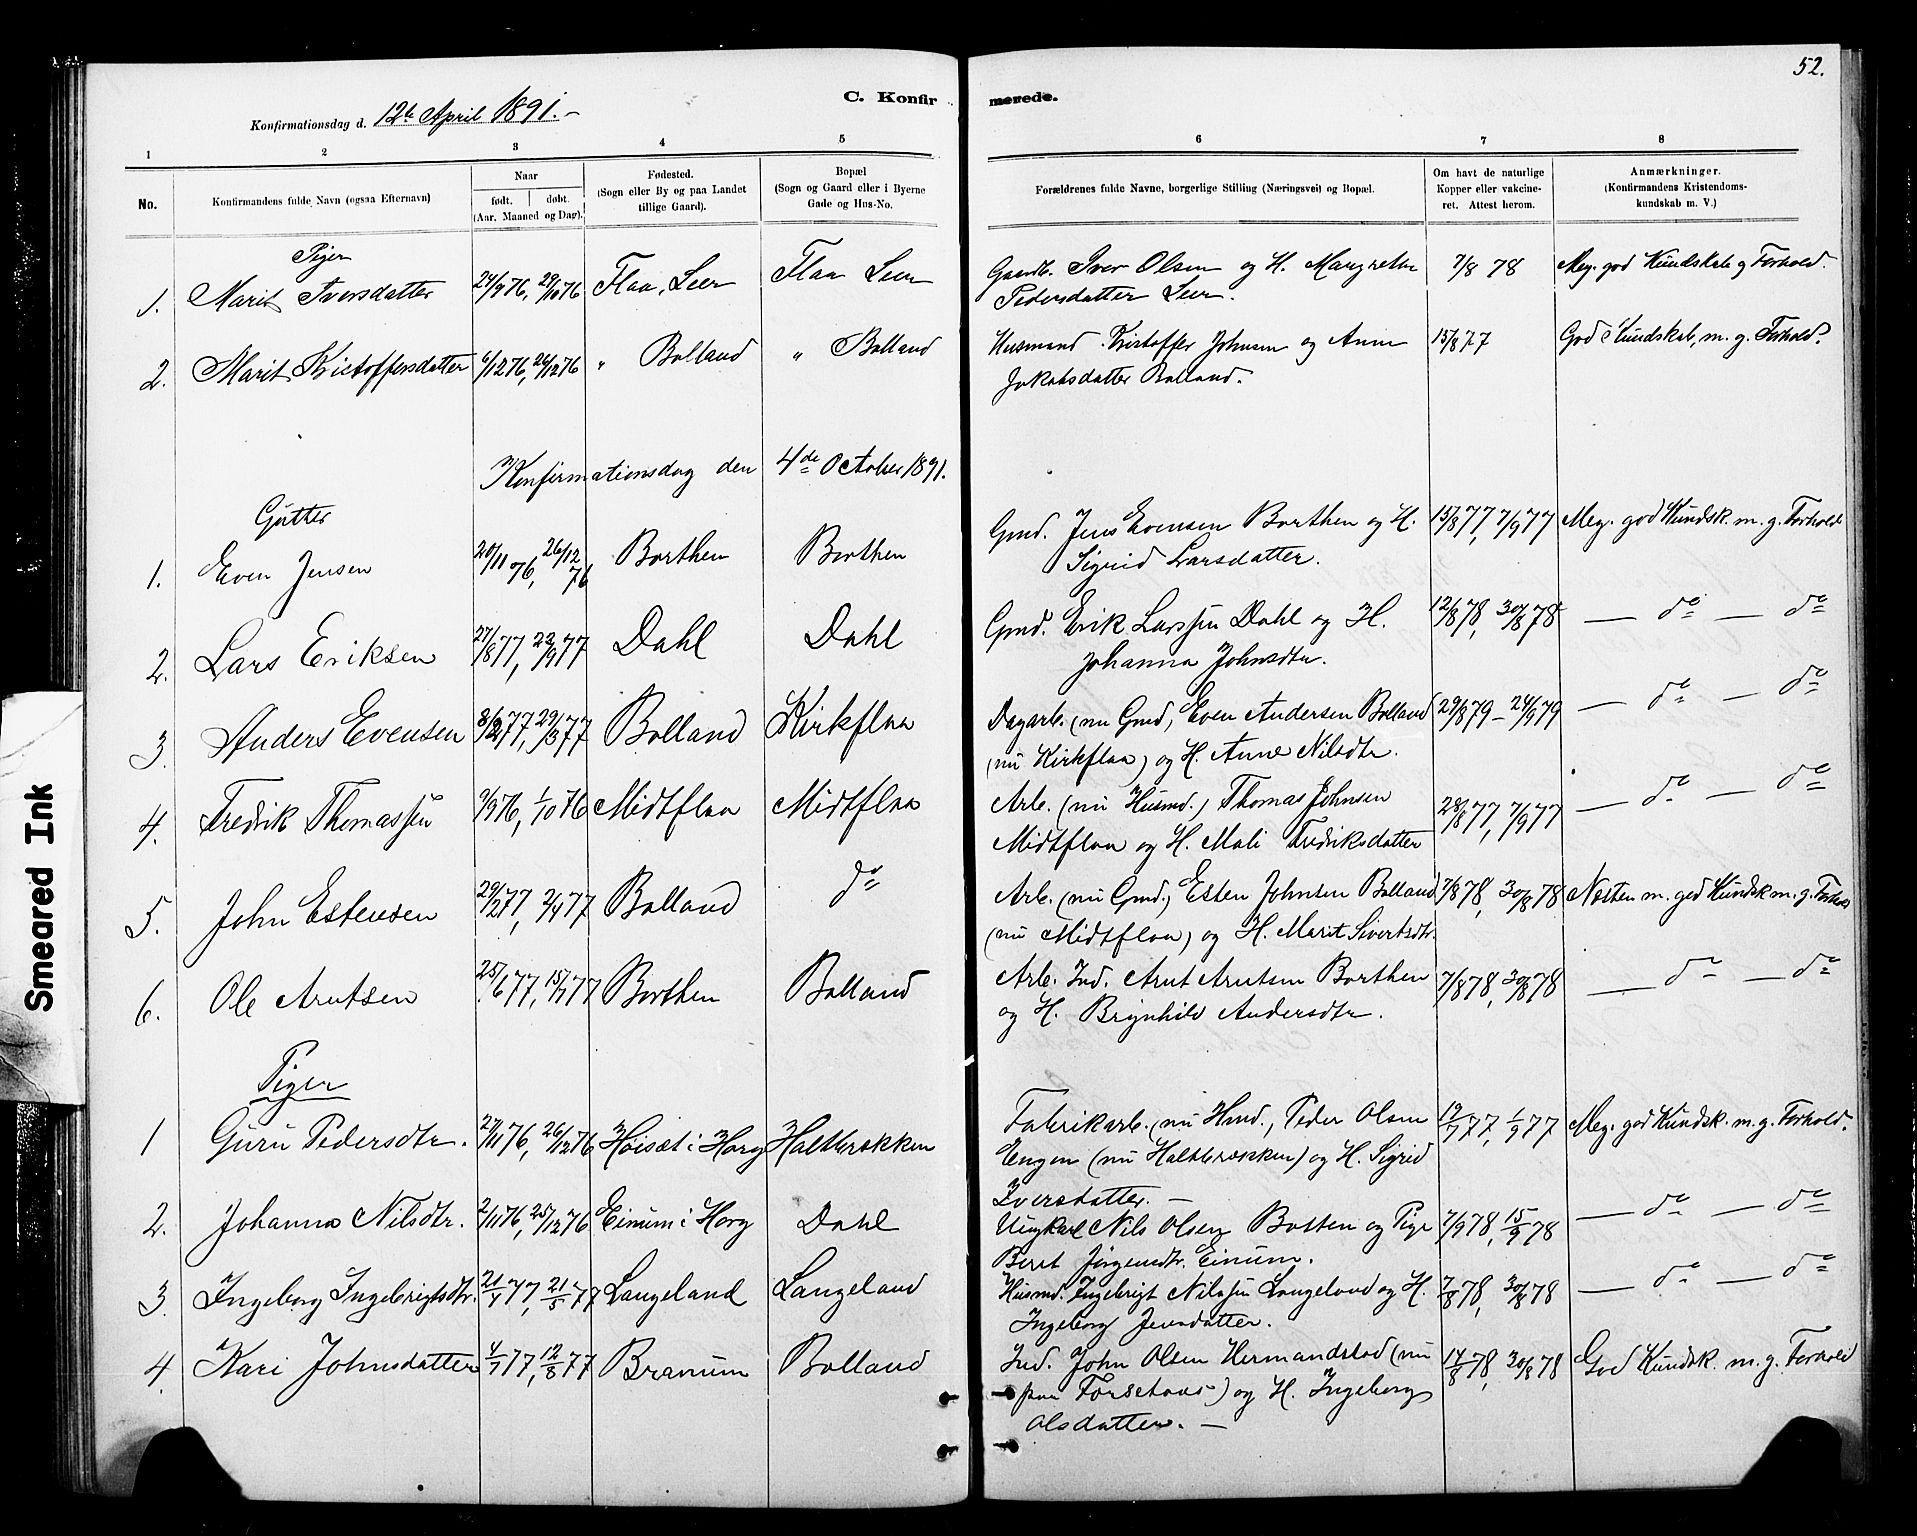 52.
C. Konfirmerede.
Konfirmationsdag d. 12te April 1891.-
1 2 3 4 5 6 7 8
No.
Konfirmandens fulde Navn (ogsaa Efternavn)
Naar
født. døbt.
(Aar. Maaned og Dag).
Fødested.
(Sogn eller By og paa Landet
tillige Gaard).
Bopæl
(Sogn og Gaard eller i Byerne
Gade og Hus-No.
Forældrenes fulde Navne, borgerlige Stilling (Næringsvei) og Bopæl.
Om havt de naturlige
Kopper eller vakcine-
ret. Attest herom.
Anmærkninger.
(Konfirmandens Kristendoms-
kundskab m. V.)
Piger
1. Marit Iversdatter 24/9 76, 29/10 76 Flaa, Leer Flaa Leer Gaardb. Iver Olsen og H. Margrethe 7/8 78 Meg. god Kundskab og Forhold.
Pedersdatter Leer.
2. Marit Kristoffersdatter 6/12 76, 26/12 76 " Bolland " Bolland Husmand Kristoffer Johnsen og Anne 15/8 77 God Kundskab, m. g. Forhold.
Jakobsdatter Bolland.
Konfirmationsdag den 4de October 1891.
Gutter
1. Even Jensen 20/11 76, 26/12 76 Borthen Borthen Gmd. Jens Evensen Borthen og H. 15/8 77, 7/9 77 Meg. god Kundsk. m. g. Forhold
Sigrid Larsdatter.
2. Lars Eriksen 27/8 77, 23/9 77 Dahl Dahl Gmd. Erik Larssen Dahl og H. 12/8 78, 30/8 78 — do — do
Johanna Johnsdtr.
3. Anders Evensen 8/2 77, 29/3 77 Bolland Kirkflaa Dagarb. (nu Gmd, Even Andersen Bolland 29/8 79 - 24/9 79 — do — do
(nu Kirkflaa) og H. Anne Nilsdtr.
4. Fredrik Thomassen 9/9 76, 1/10 76 Midtflaa Midtflaa Arb. (nu Husmd.) Thomas Johnsen 28/8 77, 7/9 77 — do — do
Midtflaa og H. Mali Fredriksdatter
5. John Estensen 20/2 77, 2/4 77 Bolland do Arb. (nu Gmd.) Esten Johnsen Bolland 7/8 78, 30/8 78 Næsten m. god Kundsk m. g. Forhold
(nu Midtflaa) og H. Marit Sivertsdtr.
6. Ole Arntsen 25/6 77, 15/7 77 Borthen Bolland Arb. Ind. Arnt Arntsen Borthen 7/8 78, 30/8 78 — do — do
og H. Brynhild Andersdtr.
Piger
1 Guru Pedersdtr. 27/11 76, 26/12 76 Høisæt i Horg Haltbrækken Fabrikarb. (nu Hmd., Peder Olsen 19/7 77, 1/9 77 Meg. god Kundsk. m. g. Forhold.
Engen (nu Haltbrækken) og H. Sigrid
Iversdatter. —
2. Johanna Nilsdtr. 2/11 76, 25/12 76 Einum i Horg Dahl Ungkarl Nils Olsen Botten og Pige 7/9 78, 15/9 78 — do — do
Beret Jørgensdtr. Einum.
3. Ingeborg Ingebrigtsdtr. 21/4 77, 21/5 77 Langeland Langeland Husmd. Ingebrigt Nilssen Langeland og H. 7/8 78, 30/8 78 — do — do
Ingeborg Jensdatter.
4. Kari Johnsdatter 4/7 77, 12/8 77 Branum Bolland Ind. John Olsen Hermandstad (nu 14/8 78, 30/8 78 God Kundsk. m. g. Forhold
paa Forsetaas) og H. Ingeborg
Olsdatter. —
Smeared Ink